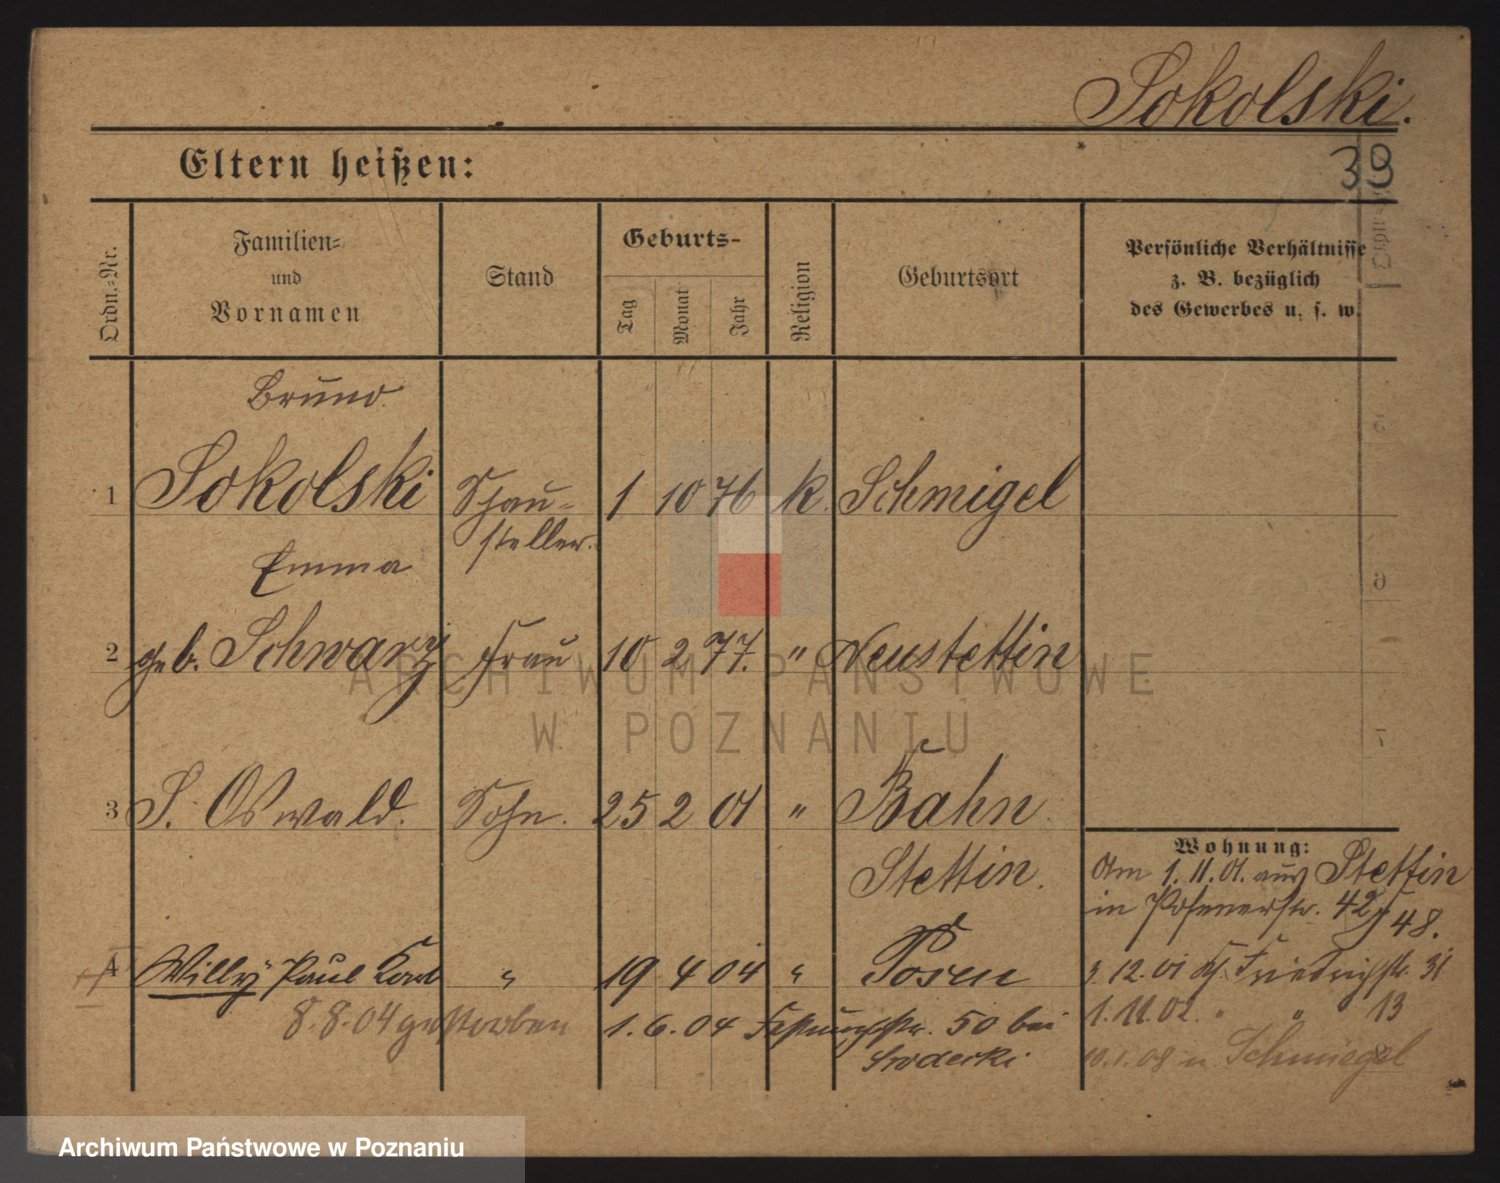 Sokolski.
Eltern heißen:
38
Ordn.-Nr.
Familien-
und
Vornamen
Stand
Geburts-
Tag
Monat
Jahr
Religion
Geburtsort
Persönliche Verhältnisse
z. B. bezüglich
des Gewerbes u. s. w.
Bruno
1 Sokolski Schau- 1 10 76 k. Schmigel
steller.
Emma
2 geb. Schwarz Frau 10 2 77. " Neustettin
3 S. Oswald. Sohn. 25 2 01 " Bahn
Stettin.
Wohnung:
Am 1.11.01. aus Stettin
in Posenerstr. 42 48.
4 Willy Paul " 19 4 04 " Posen
3.12.01 Kl. Friedrichstr. 31
8.8.04 gestorben 1.6.04 Festungsstr. 50 bei
Srodecki
1.11.02. " " 13
10.1.08 n. Schmiegel
ARCHIWUM PAŃSTWOWE
W POZNANIU
Archiwum Państwowe w Poznaniu